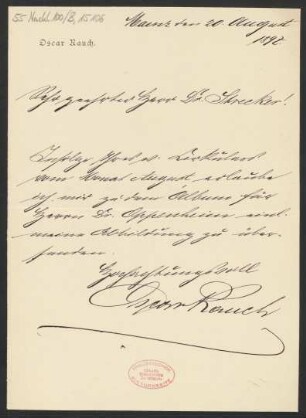 55 Nachl. 100/B, 15, 106
Mainz den 20 August
1892.
Oscar Rauch.
Sehr geehrter Herr Dr. Strecker!
Infolge Ihres w. Cirkulars
vom Monat August erlaube
ich mir zu dem Album für
Herrn Dr. Oppenheim
meine Abbildung zu über-
senden.
Hochachtungsvoll
Oscar Rauch